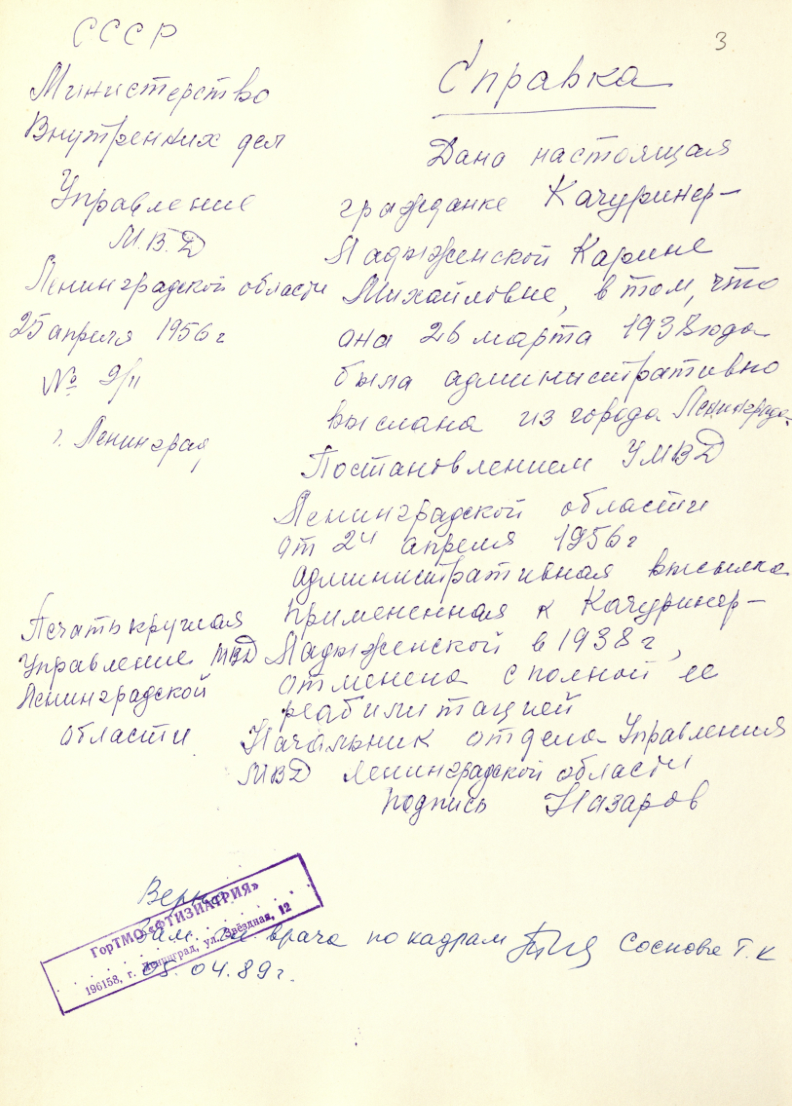 3
СССР
Министерство
Внутренних дел
Управление
М.В.Д
Ленинградской области
25 апреля 1956 г
№ 9/п
г. Ленинград
Справка
Дана настоящая
гражданке Качуринер-
Ладыженской Карине
Михайловне, в том, что
она 26 марта 1938 года
была административно
выслана из города Ленинграда.
Постановлением УМВД
Ленинградской области
от 24 апреля 1956 г
административная высылка
примененная к Качуринер-
Ладыженской в 1938 г,
отменена с полной ее
реабилитацией
Печать круглая
Управление МВД
Ленинградской
области
Начальник отдела Управления
МВД Ленинградской области
подпись Назаров
Верно
Зам. гл врача по кадрам Соснова Т.К
05.04.89 г.
ГорТМО «ФТИЗИАТРИЯ»
196158, г. Ленинград, ул. Звёздная, 12